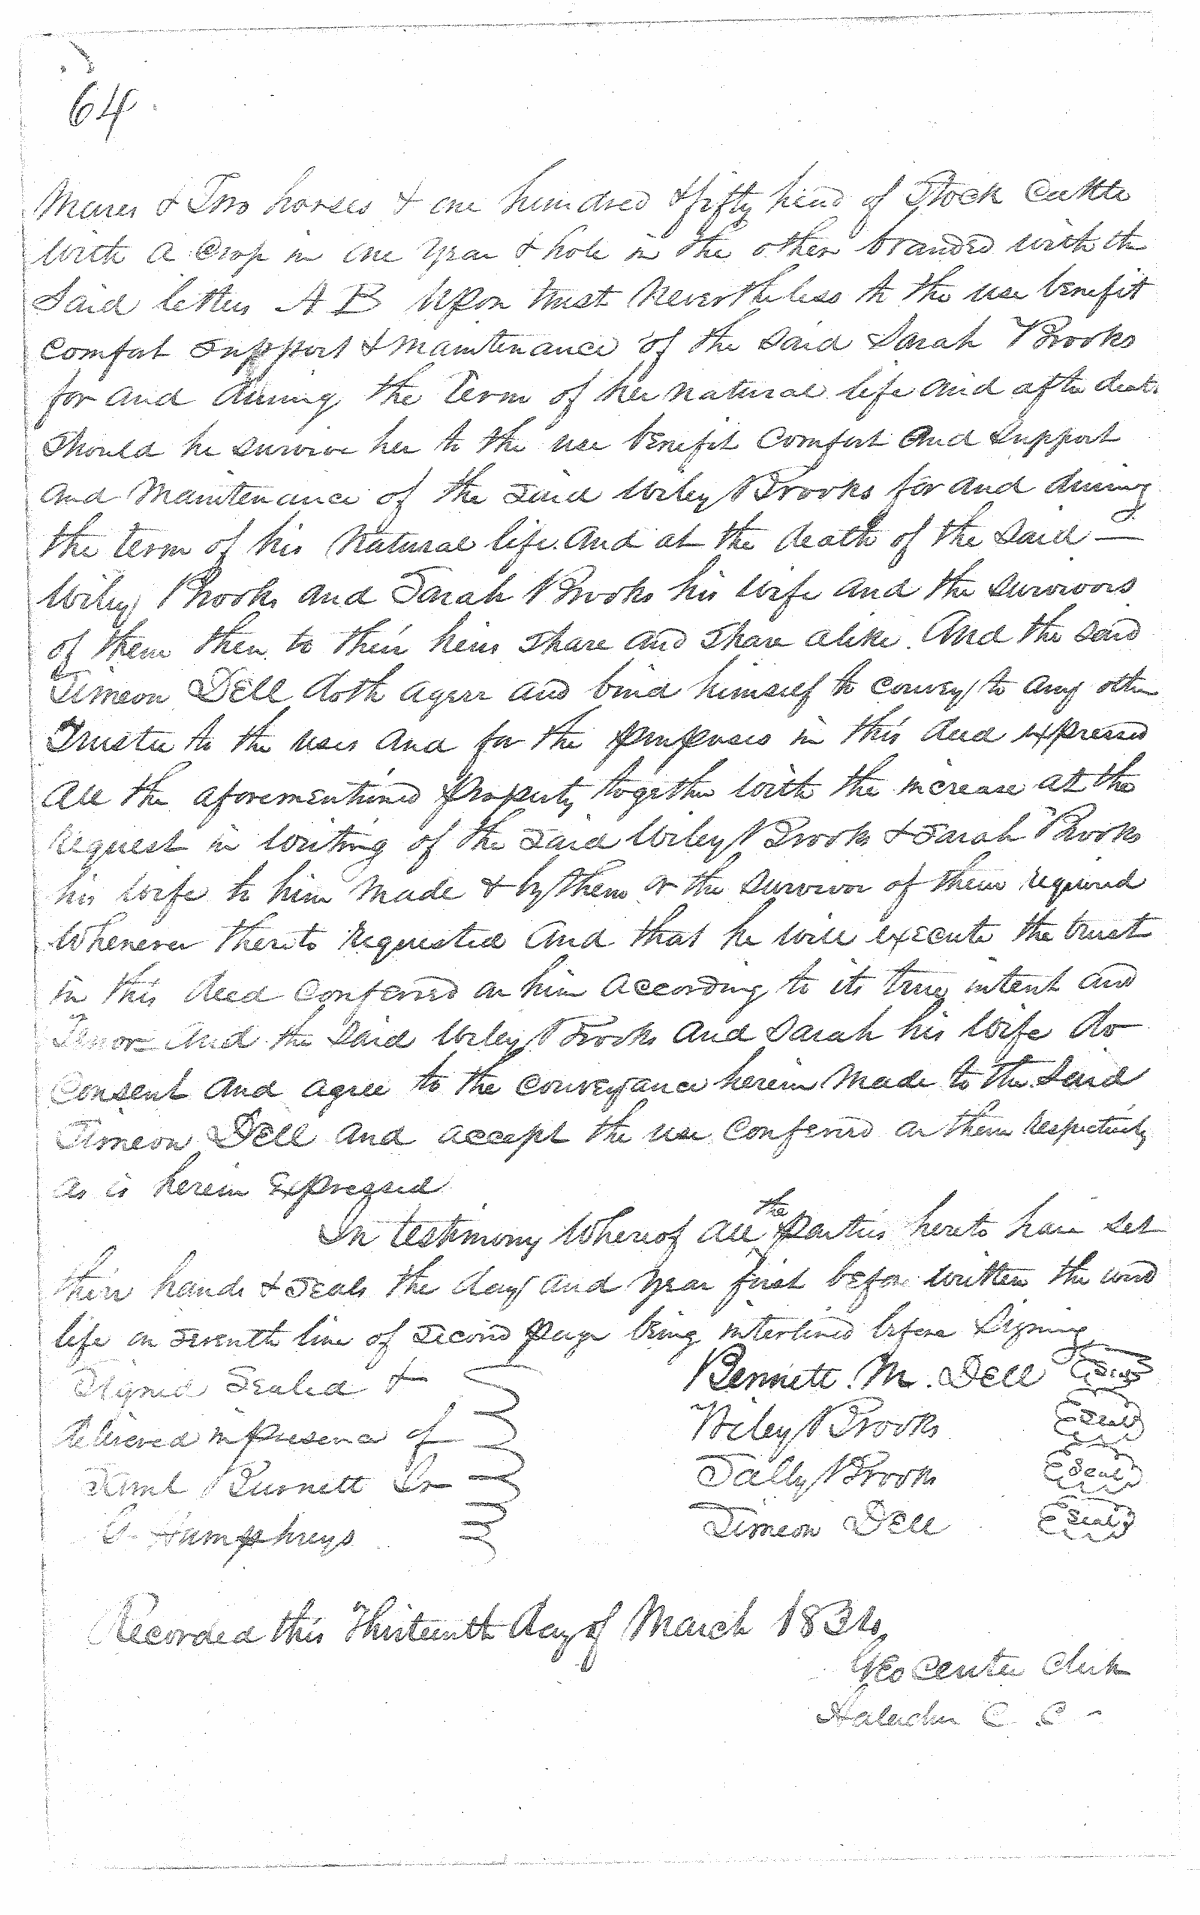 64
Mares & Two horses & one hundred & fifty head of Stock Cattle
With a Crop in one year & hole in the other branded with the
Said letters A B Upon trust Nevertheless to the use benefit
Comfort Support & maintenance of the Said Sarah Brooks
for and during the Term of her natural life and after death
Should he survive her to the use benefit Comfort and Support
and Maintenance of the Said Wiley Brooks for and during
the term of his Natural life. And at the death of the Said —
Wiley Brooks and Sarah Brooks his wife and the survivors
of them then to their heirs Share and Share alike. And the said
Simeon Dell doth agree and bind himself to convey to any other
Trustee to the uses and for the purposes in this deed expressed
All the aforementioned property together with the increase at the
request in Writing of the Said Wiley Brooks & Sarah Brooks
his Wife to him Made & by them or the survivor of them required
Whenever thereto requested And that he will execute the trust
in this deed Conferred on him According to its true intent and
Tenor And the Said Wiley Brooks and Sarah his Wife do
Consent and agree to the Conveyance herein Made to the Said
Simeon Dell and accept the use Conferred on them respectively
as is herein Expressed
In testimony Whereof all the parties hereto have set
their hands & Seals the day and year first before written the word
life on Seventh line of Second page being interlined before Signing
Signed Sealed & Bennett. M. Dell Seal
delivered in presence of Wiley Brooks Seal
Saml Burnett Sr Sally Brooks Seal
G. Humphreys Simeon Dell Seal
Recorded this Thirteenth day of March 1834
Geo Center Clerk
Alachu C. C.